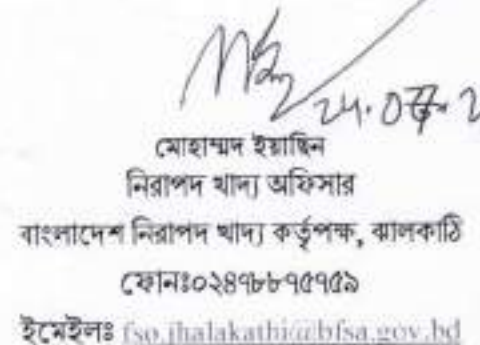 24.07.2
মোহাম্মদ ইয়াছিন
নিরাপদ খাদ্য অফিসার
বাংলাদেশ নিরাপদ খাদ্য কর্তৃপক্ষ, ঝালকাঠি
ফোনঃ০২৪৭৮৮৭৫৭৫৯
ইমেইলঃ fso.jhalakathi@bfsa.gov.bd